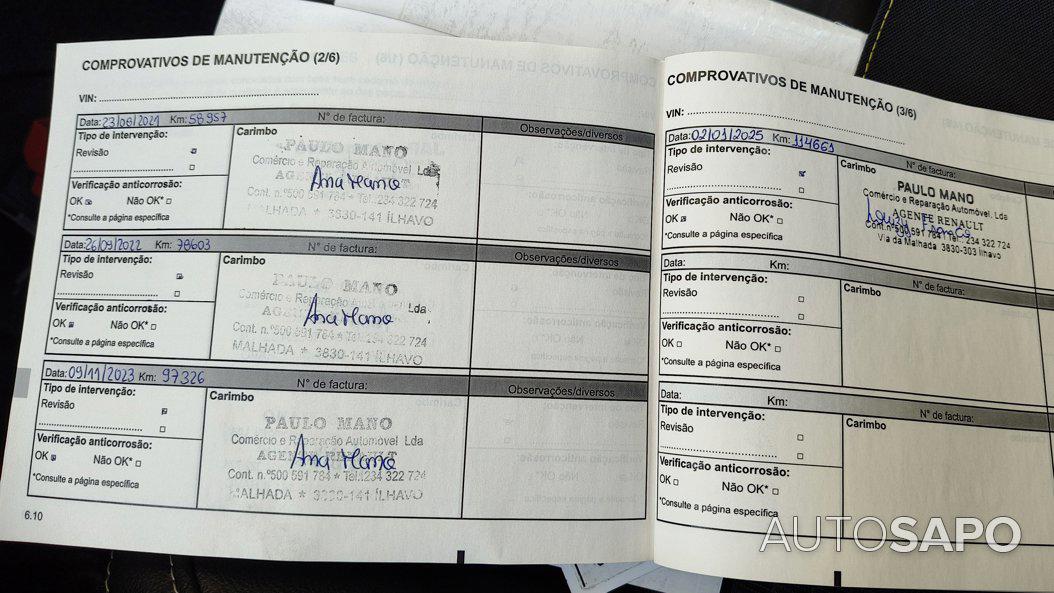 COMPROVATIVOS DE MANUTENÇÃO (2/6)
VIN:
Data: 23/06/2021 Km: 58957 N° de factura:
Observações/diversos
Tipo de intervenção:
Revisão
Verificação anticorrosão:
OK Não OK*
*Consulte a página específica
Carimbo
PAULO MANO
Comércio e Reparação Automóvel Lda
AGENTE RENAULT
Ana Mano
Cont. n.º500 591 784 * Tel.:234 322 724
MALHADA * 3830-141 ÍLHAVO
Data: 26/09/2022 Km: 78603 N° de factura:
Observações/diversos
Tipo de intervenção:
Revisão
Verificação anticorrosão:
OK Não OK*
*Consulte a página específica
Carimbo
PAULO MANO
Comércio e Reparação Automóvel Lda
Ana Mano
Cont. n.º500 591 784 * Tel.:234 322 724
MALHADA * 3830-141 ÍLHAVO
Data: 09/11/2023 Km: 97326 N° de factura:
Observações/diversos
Tipo de intervenção:
Revisão
Verificação anticorrosão:
OK Não OK*
*Consulte a página específica
Carimbo
PAULO MANO
Comércio e Reparação Automóvel Lda
AGENTE RENAULT
Ana Mano
Cont. n.º500 591 784 * Tel.:234 322 724
MALHADA * 3830-141 ÍLHAVO
6.10
COMPROVATIVOS DE MANUTENÇÃO (3/6)
VIN:
Data: 02/01/2025 Km: 114661 N° de factura:
Tipo de intervenção:
Revisão
Verificação anticorrosão:
OK Não OK*
*Consulte a página específica
Carimbo
PAULO MANO
Comércio e Reparação Automóvel, Lda
AGENTE RENAULT
Cont.nº500 591 784 Tel.: 234 322 724
Via da Malhada 3830-303 Ílhavo
Data: Km: N° de factura:
Tipo de intervenção:
Revisão
Verificação anticorrosão:
OK Não OK*
*Consulte a página específica
Carimbo
Data: Km: N° de factura:
Tipo de intervenção:
Revisão
Verificação anticorrosão:
OK Não OK*
*Consulte a página específica
Carimbo
AUTOSAPO